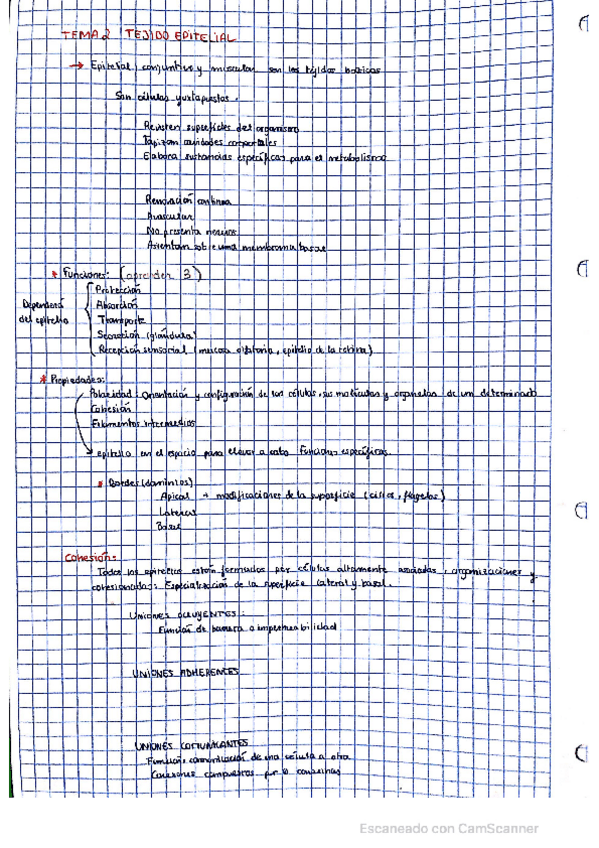 TEMA 2 TEJIDO EPITELIAL
→ Epitelial, conjuntivo y muscular son los tejidos básicos
Son células yuxtapuestas.
Revisten superficies del organismo
Tapizan cavidades corporales
Elabora sustancias específicas para el metabolismo
Renovación continua
Avascular
No presenta nervios
Asientan sobre una membrana basal
* Funciones: (aprender 3)
Protección
Dependerá
del epitelio
Absorción
Transporte
Secreción (glándula)
Recepción sensorial (mucosa olfatoria, epitelio de la retina)
* Propiedades:
Polaridad: Orientación y configuración de las células, sus moléculas y organelas de un determinado
Cohesión
Filamentos intermedios
epitelio en el espacio para llevar a cabo funciones específicas
* Bordes (dominios)
Apical → modificaciones de la superficie (cilios, flagelos)
Lateral
Basal
Cohesión:
Todos los epitelios están formados por células altamente asociadas, organizaciones y
cohesionadas: Especialización de la superficie lateral y basal.
UNIONES OCLUYENTES:
Función de barrera o impermeabilidad
UNIONES ADHERENTES
UNIONES COMUNICANTES
Función: comunicación de una célula a otra
Conexones compuestos por 6 conexinas
Escaneado con CamScanner